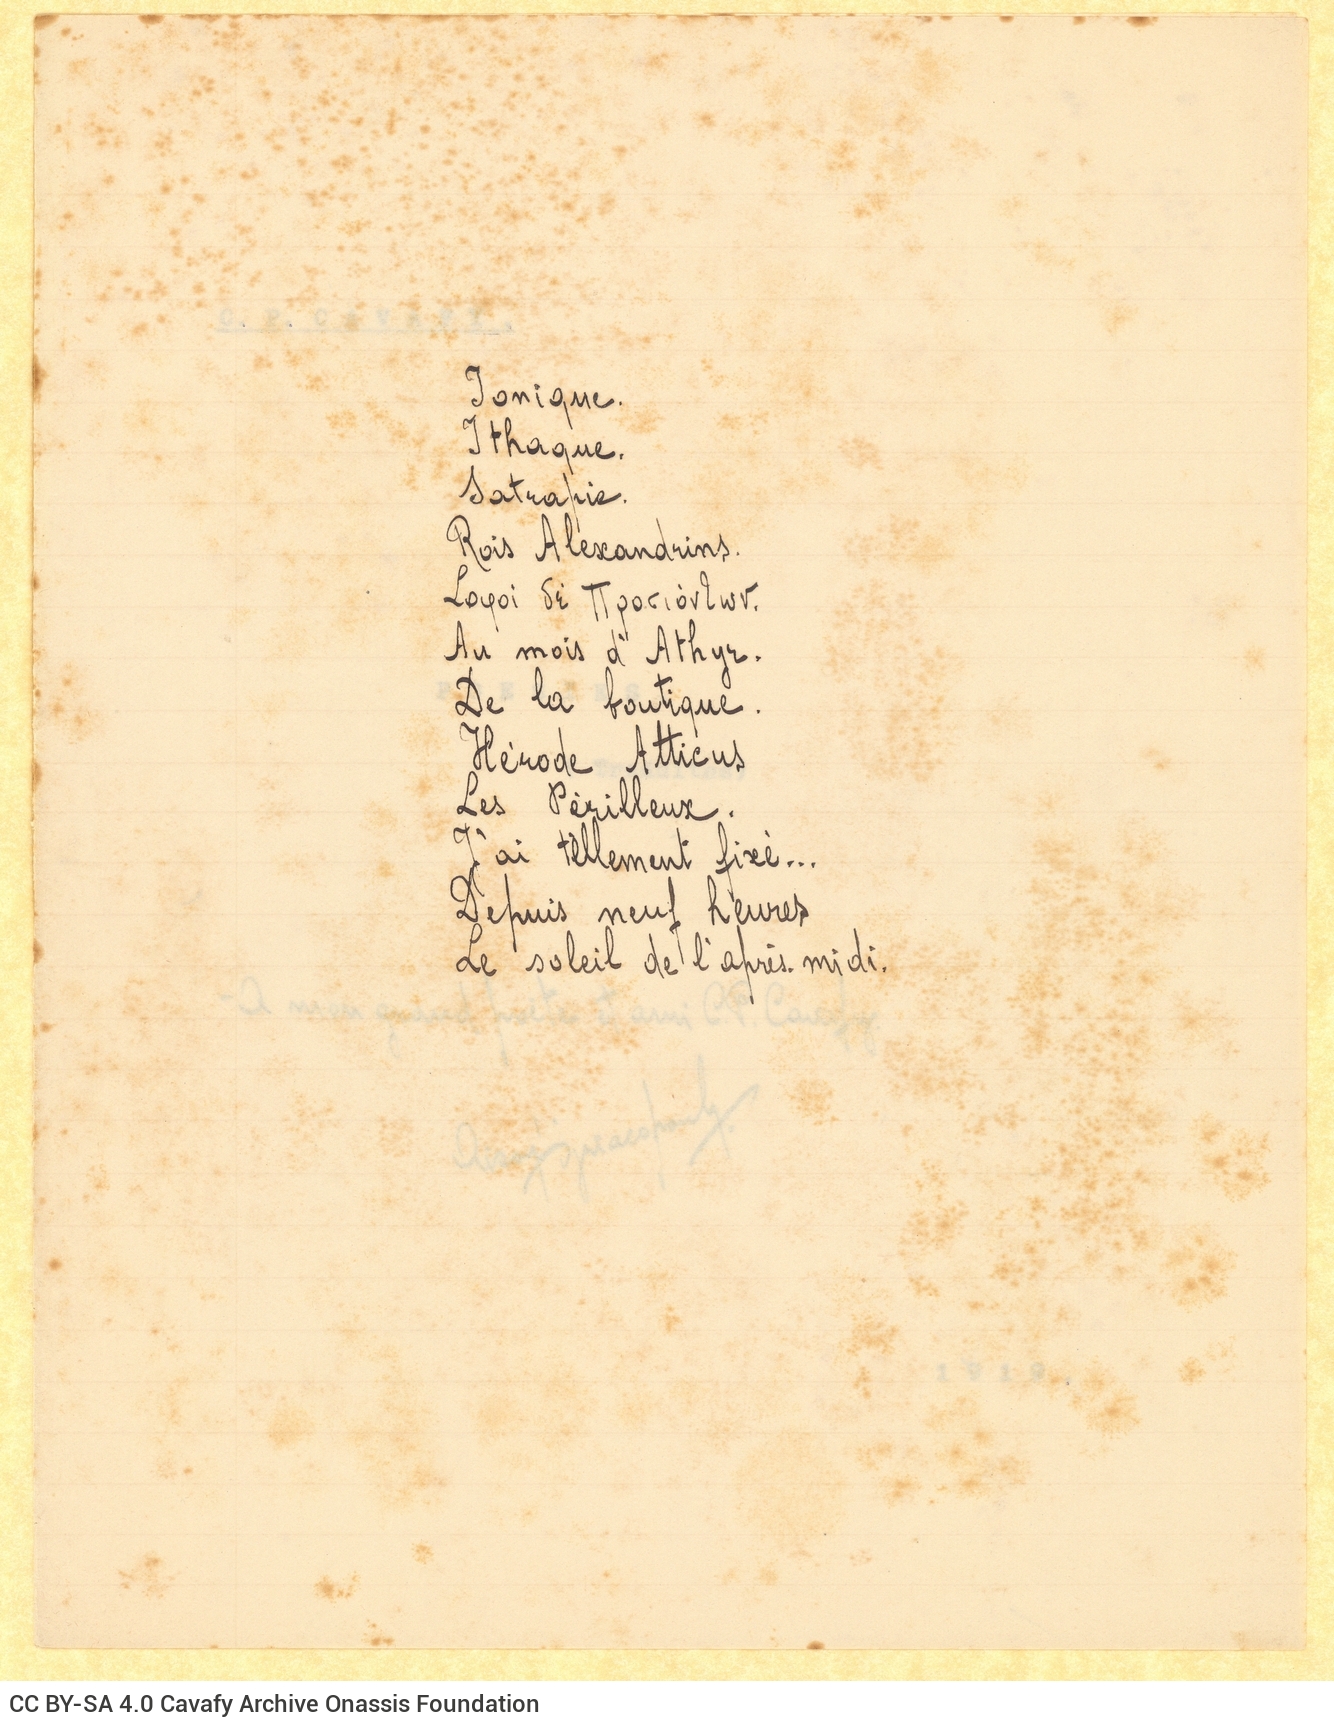 C. P. CAVAFY.
Ionique.
Ithaque.
Satrapie.
Rois Alexandrins.
Σοφοί δέ Προσιόντων.
Au mois d'Athyr.
De la boutique.
Hérode Atticus
Les Périlleux.
J'ai tellement fixé...
Depuis neuf heures
Le soleil de l'après-midi.
A mon grand poète et ami C. P. Cavafy
1919.
CC BY-SA 4.0 Cavafy Archive Onassis Foundation